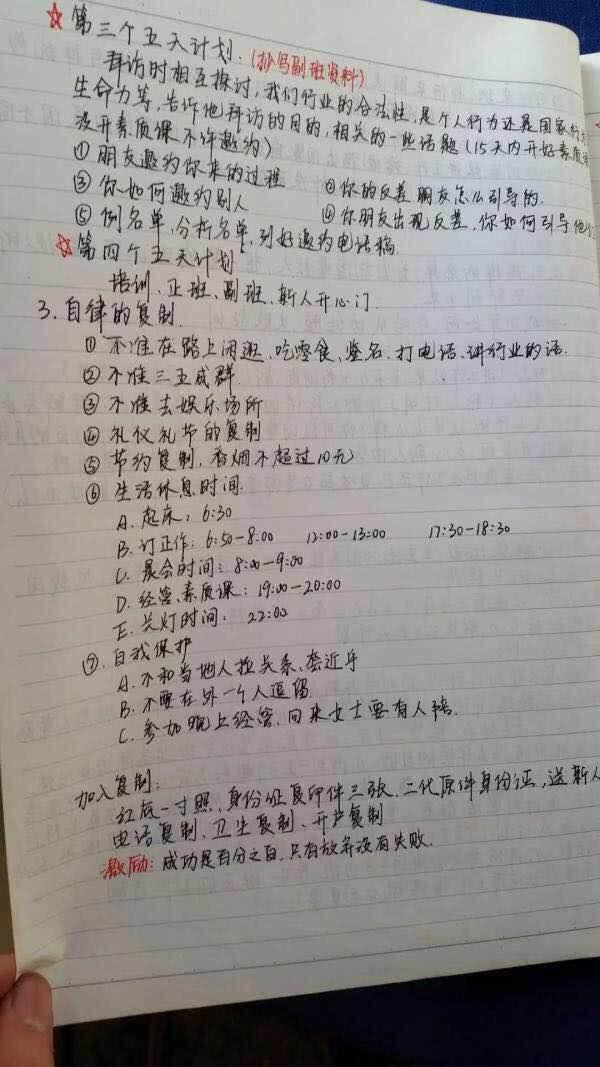 ☆第三个五天计划:(抄写副班资料)
拜访时相互探讨,我们行业的合法性,是个人行为还是国家行
生命力等,告诉他拜访的目的,相关的一些话题(15天内开好素质课
没开素质课不许邀约)
①朋友邀约你来的过程 ②你的反差朋友怎么引导的.
③你如何邀约别人 ④你朋友出现反差,你如何引导他
⑤例名单,分析名单,列好邀约电话稿
☆第四个五天计划
培训、正班、副班、新人开心门.
3.自律的复制.
①不准在路上闲逛、吃零食、签名、打电话、讲行业的话.
②不准三五成群.
③不准去娱乐场所
④礼仪礼节的复制
⑤节约复制,香烟不超过10元
⑥生活休息时间.
A.起床:6:30
B.订正作:6:50-8:00 12:00-13:00 17:30-18:30
C.晨会时间:8:00-9:00
D.经营、素质课:19:00-20:00
E.关灯时间:22:00
⑦.自我保护
A.不和当地人拉关系、套近乎
B.不要在外一个人逗留.
C.参加晚上经营,回来女士要有人陪.
加入复制:
红底一寸照、身份证复印件三张、二代原件身份证,送新人
电话复制、卫生复制、开户复制
激励:成功是百分之百,只有放弃没有失败.